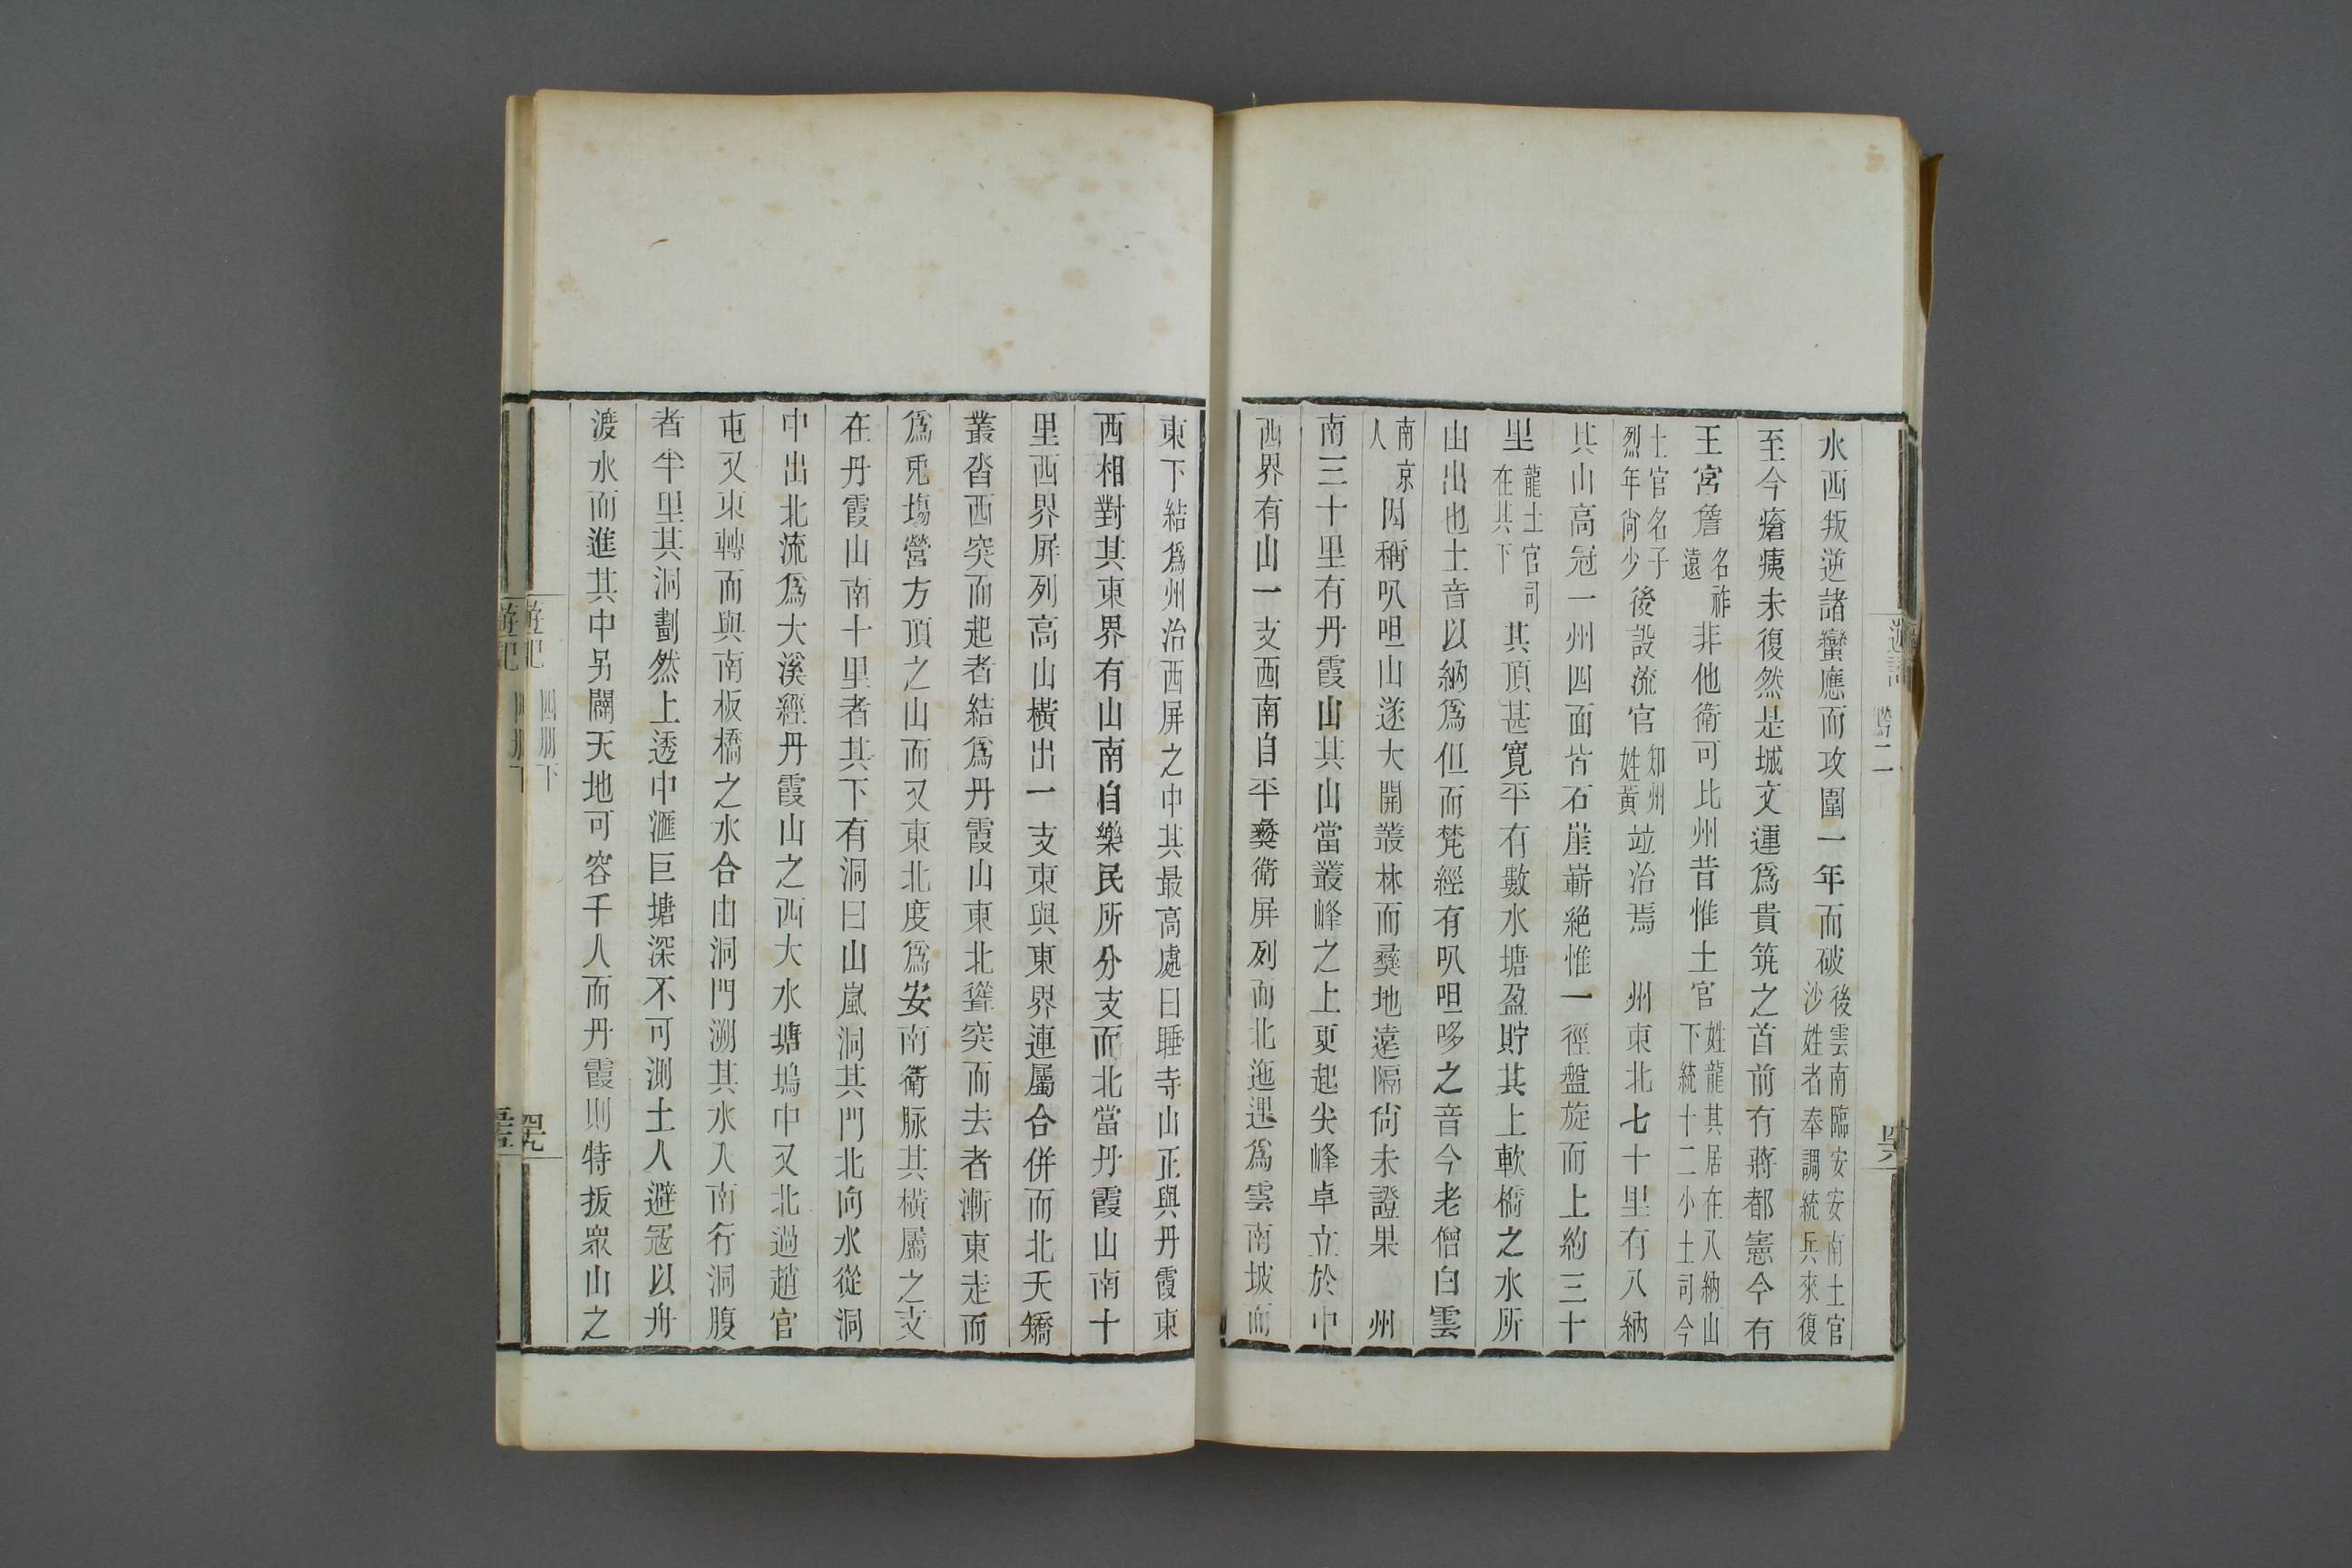 水西叛逆諸蠻應而攻圍一年而破後雲南臨安安南土官沙姓者奉調統兵來復
至今瘡痍未復然是城文運爲貴筑之首前有蔣都憲今有
王宮詹名祚遠非他衛可比州昔惟土官姓龍其居在八納山下統十二小土司今
土官名子烈年尙少後設流官知州姓黃竝治焉　州東北七十里有八納
其山高冠一州四面皆石崖嶄絶惟一徑盤旋而上約三十
里龍土官司在其下其頂甚寬平有數水塘盈貯其上軟橋之水所
由出也土音以納爲但而梵經有叭呾哆之音今老僧白雲
南京人因稱叭呾山遂大開叢林而彞地遠隔尙未證果　州
南三十里有丹霞山其山當叢峰之上更起尖峰卓立於中
西界有山一支西南自平彞衛屏列而北迤邐爲雲南坡而
遊記
黔二
東下結爲州治西屏之中其最高處曰睡寺山正與丹霞東
西相對其東界有山南自樂民所分支而北當丹霞山南十
里西界屏列高山橫出一支東與東界連屬合併而北天矯
叢沓西突而起者結爲丹霞山東北聳突而去者漸東走而
爲兎塲營方頂之山而又東北度爲安南衛脉其橫屬之支
在丹霞山南十里者其下有洞曰山嵐洞其門北向水從洞
中出北流爲大溪經丹霞山之西大水塘塢中又北過趙官
屯又東轉而與南板橋之水合由洞門溯其水入南行洞腹
者半里其洞劃然上透中滙巨塘深不可測土人避寇以舟
渡水而進其中另闢天地可容千人而丹霞則特扳衆山之
遊記
四册下
四九
遊記
四册下